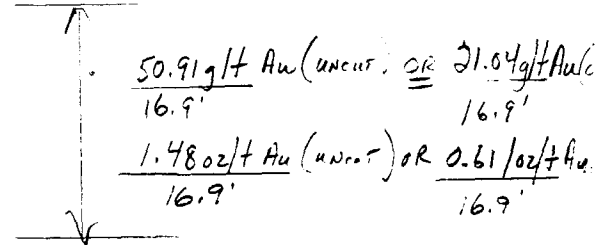 50.91 g/t Au (uncut. OR 21.04g/t Au(c
16.9' 16.9'
1.48 oz/t Au (uncut) OR 0.61/oz/t Au.
16.9' 16.9'